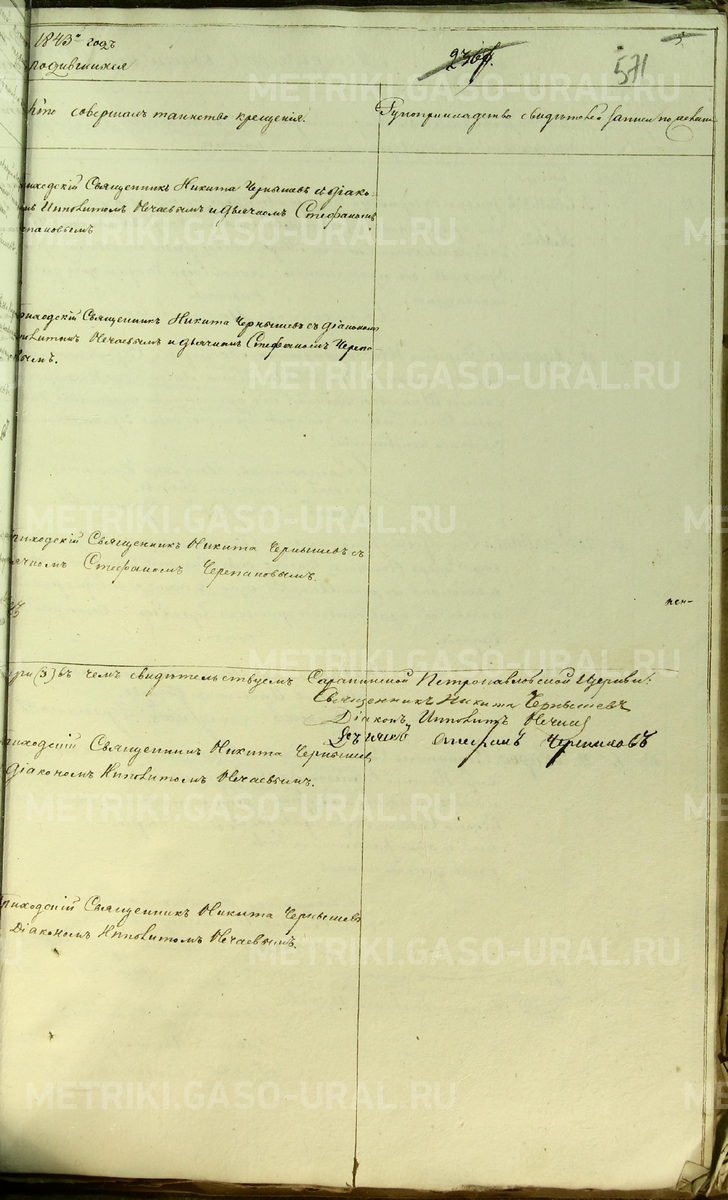 1843го годъ
родившихся
236
571
Кто совершалъ таинство крещенія.
Рукоприкладство свидѣтелей записи по желанію
Приходскій Священникъ Никита Чернышевъ съ діако-
номъ Ипполитомъ Нечаевымъ и дьячкомъ Стефаномъ
Черепановымъ
Приходскій Священникъ Никита Чернышевъ съ діакономъ
Ипполитомъ Нечаевымъ и дьячкомъ Стефаномъ Черепа-
новымъ.
Приходскій Священникъ Никита Чернышевъ съ
дьячкомъ Стефаномъ Черепановымъ.
три (3) въ чемъ свидѣтельствуемъ Сарапинской Петропавловской Церкви:
Священникъ Никита Чернышевъ
Діаконъ Ипполитъ Нечаевъ
Дьячекъ Стефанъ Черепановъ
Приходскій Священникъ Никита Чернышевъ
діакономъ Ипполитомъ Нечаевымъ.
Приходскій Священникъ Никита Чернышевъ
Діакономъ Ипполитомъ Нечаевымъ.
METRIKI.GASO-URAL.RU